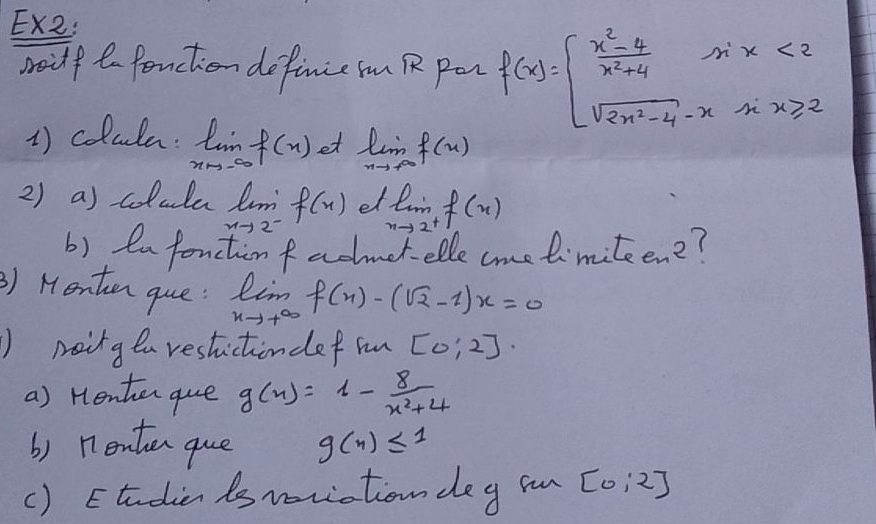 EX2:
soit f la fonction définie sur ℝ par f(x) = { x²-4 / x²+4 si x < 2
√2x²-4 - x si x ≥ 2
1) calculer : lim x→-∞ f(x) et lim x→+∞ f(x)
2) a) calculer lim x→2⁻ f(x) et lim x→2⁺ f(x)
b) la fonction f admet-elle une limite en 2 ?
3) Montrer que : lim x→+∞ f(x) - (√2 - 1)x = 0
) soit g la restriction de f sur [0;2].
a) Montrer que g(x) = 1 - 8 / x²+4
b) Montrer que g(x) ≤ 1
c) Etudier les variations de g sur [0;2]